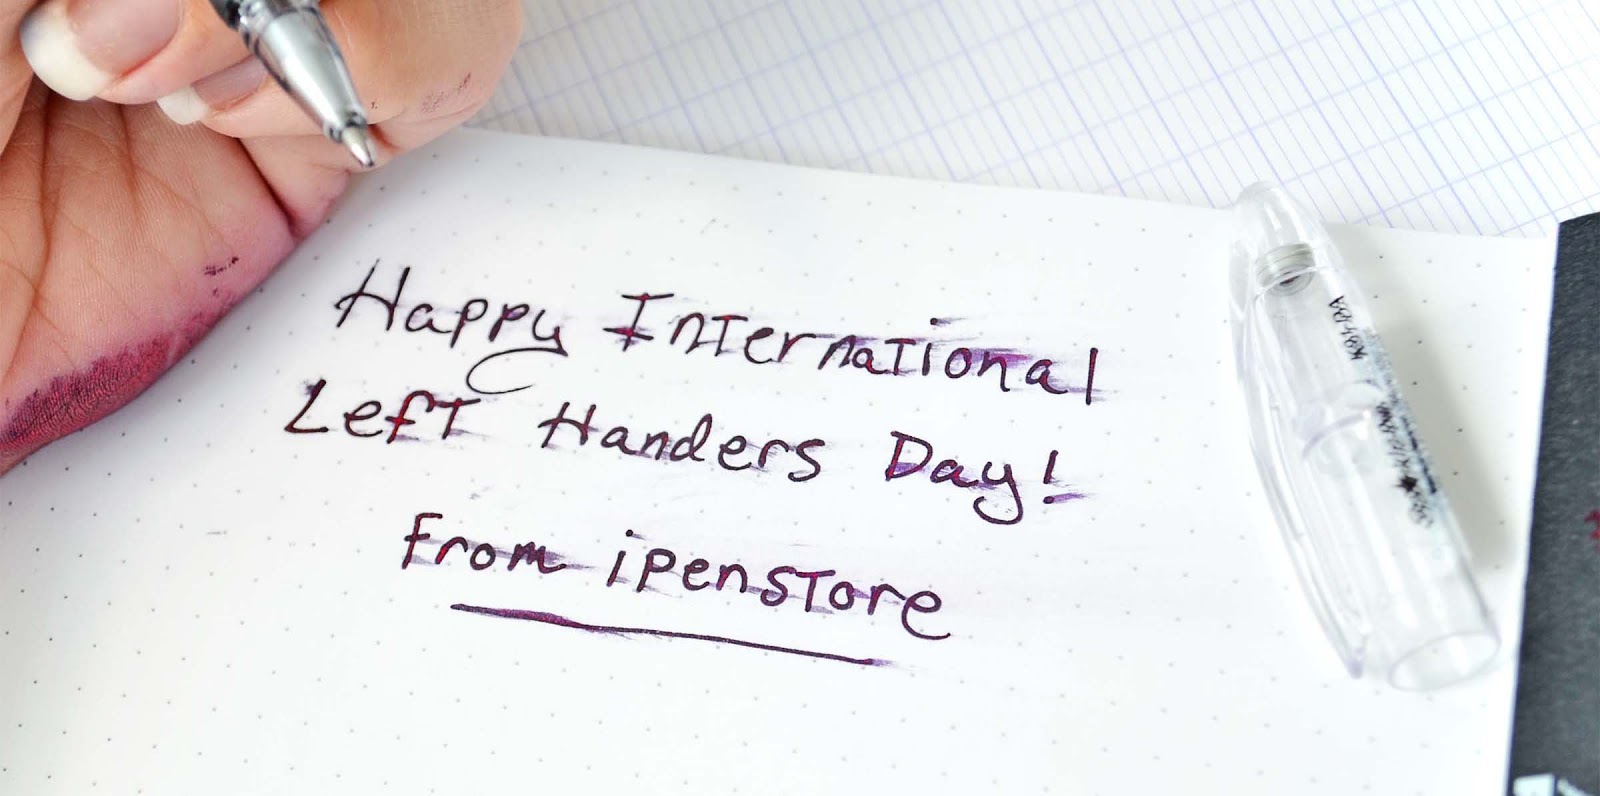 Happy International
Left Handers Day!
From ipenstore